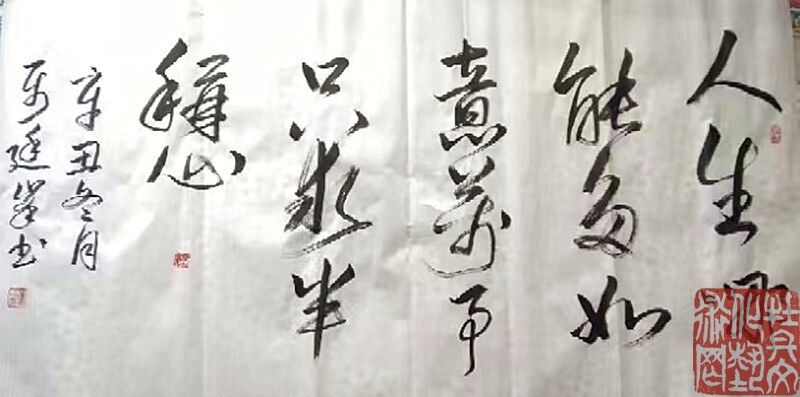 人生哪
能多如
意萬事
只求半
稱心
辛丑冬月
廷峯书